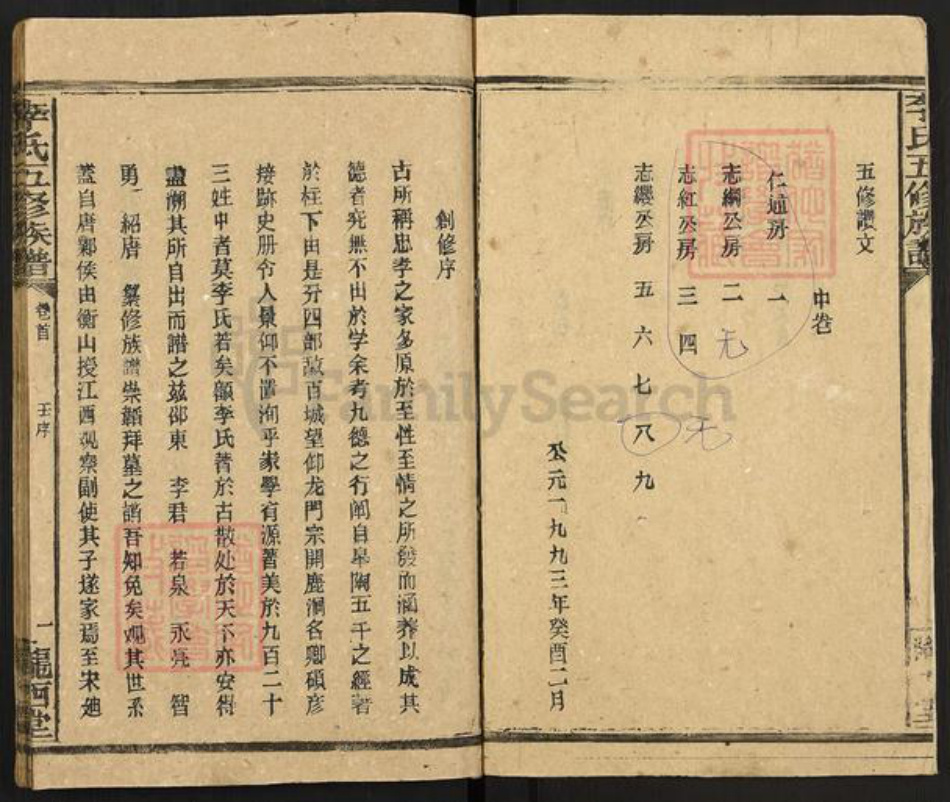 李氏五修族譜
五修讚文
中卷
仁通房 一
志綱公房 二 无
志紅公房 三 四
志纓公房 五 六 七 八 九 无
公元一九九三年癸酉二月
創修序
古所稱忠孝之家多原於至性至情之所發而涵养以成其
德者究無不由於学余考九德之行闡自皋陶五千之經著
於柱下由是分四部敵百城望仰龙門宗開鹿洞各卿碩彦
接跡史册令人景仰不遑洵乎家學有源著美於九百二十
三姓中者莫李氏若矣顧李氏昔於古散处於天下亦安得
盡溯其所自出而譜之兹邵東 李君 若泉 永亮 智
勇 紹唐 纂修族譜崇韜拜墓之誚吾知免矣观其世系
蓋自唐鄴侯由衡山授江西观察副使其子遂家焉至宋廸
李氏五修族譜
卷首
王序
一
隴西堂
FamilySearch